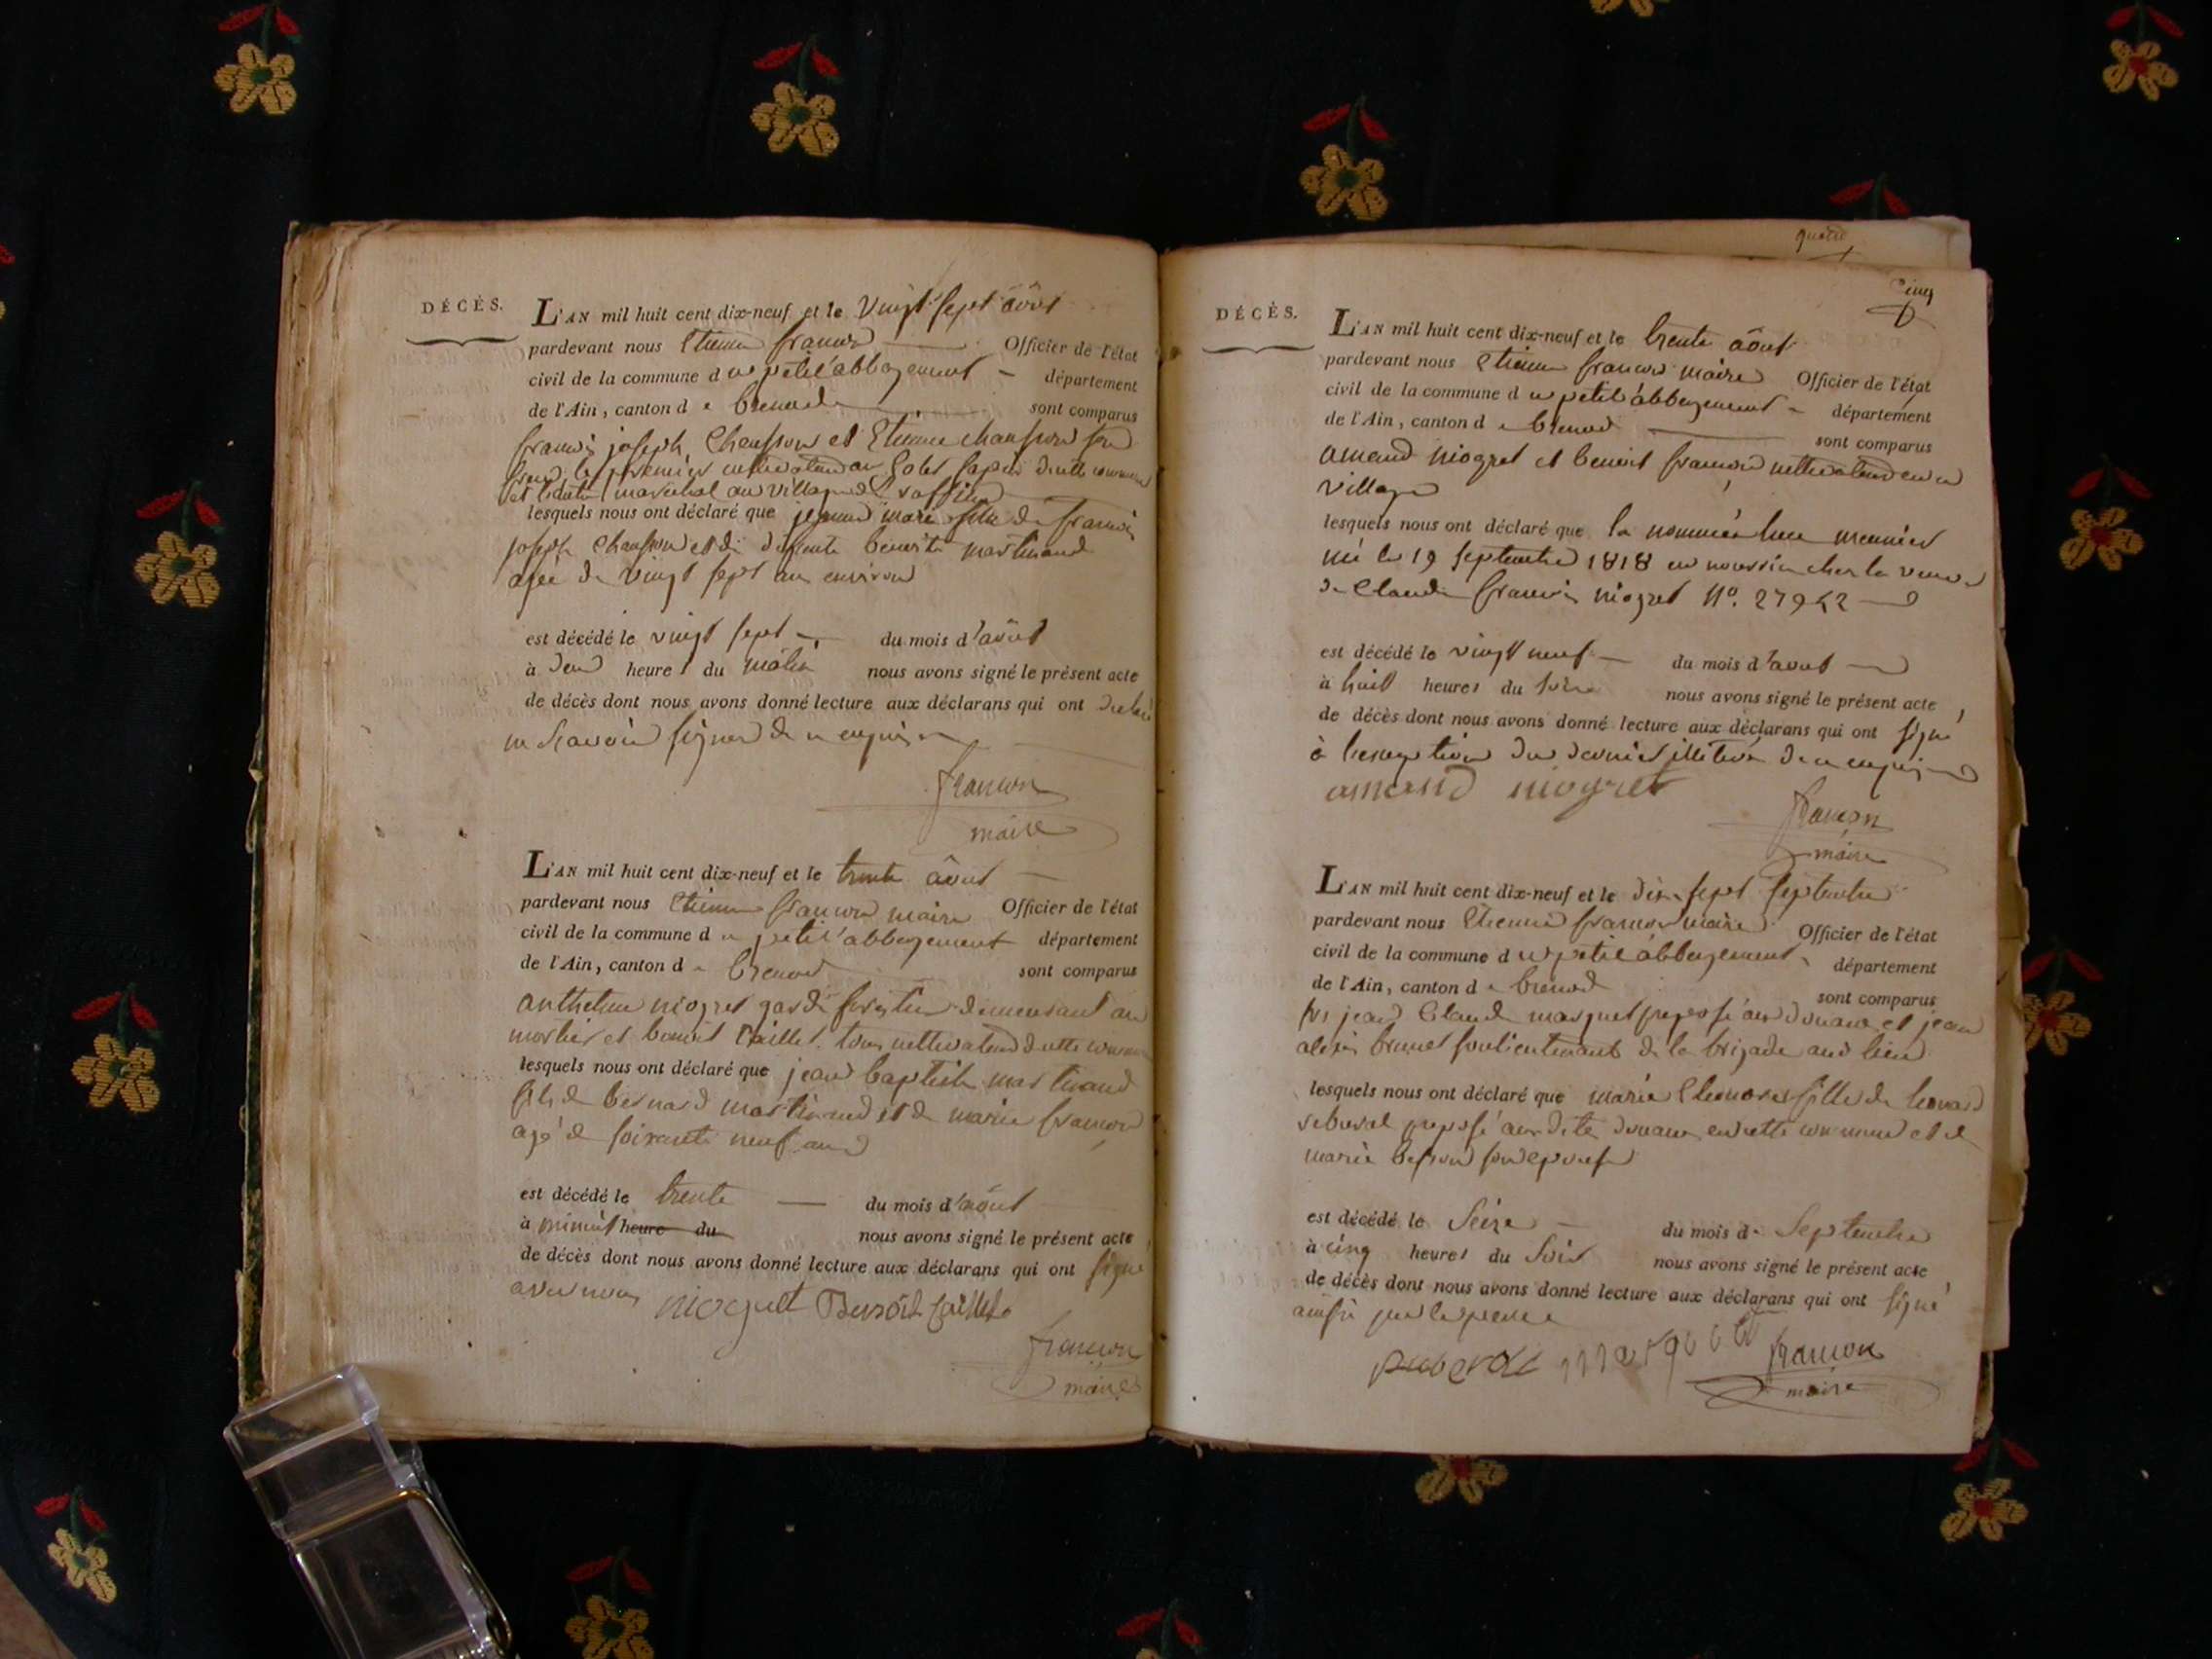 DÉCÈS.
L'AN mil huit cent dix-neuf et le Vingt sept août
pardevant nous Etienne françon Officier de l'état
civil de la commune d u petit abbergement département
de l'Ain, canton d e brenod sont comparus
françois joseph Chanssion et Etienne chanssion son
le premier cultivateur
et maréchal au village
lesquels nous ont déclaré que jeanne marie fille de françois
joseph Chanssion et de benoite martinand
agée de vingt sept ans environ
est décédé le vingt sept du mois d'août
à deux heures du matin nous avons signé le présent acte
de décès dont nous avons donné lecture aux déclarans qui ont déclaré
ne scavoir signer de ce enquis
françon
maire
L'AN mil huit cent dix-neuf et le trente août
pardevant nous Etienne françon maire Officier de l'état
civil de la commune d u petit abbergement département
de l'Ain, canton d e brenod sont comparus
anthelme niogret garde forestier demeurant au
mortier et benoit Caillet tous cultivateurs de cette commune
lesquels nous ont déclaré que jean baptiste martinand
fils de bernard martinand et de marie françon
agé de soixante neuf ans
est décédé le trente du mois d'août
à minuit heure du nous avons signé le présent acte
de décès dont nous avons donné lecture aux déclarans qui ont signé
avec nous niogret Benoit Caillet
françon
maire
quatre
cinq
DÉCÈS.
L'AN mil huit cent dix-neuf et le trente août
pardevant nous Etienne françon maire Officier de l'état
civil de la commune d u petit abbergement département
de l'Ain, canton d e brenod sont comparus
amand niogret et benoit françon cultivateurs en ce
village
lesquels nous ont déclaré que la nommée luce meunier
née le 19 septembre 1818 en nourrice chez la veuve
de Claude françois niogret N°. 27952
est décédé le vingt neuf du mois d'aout
à huit heures du soir nous avons signé le présent acte
de décès dont nous avons donné lecture aux déclarans qui ont signé
à l'exception du dernier illitéré de ce enquis
amand niogret
françon
maire
L'AN mil huit cent dix-neuf et le dix sept septembre
pardevant nous Etienne françon maire Officier de l'état
civil de la commune d u petit abbergement département
de l'Ain, canton d e brenod sont comparus
jean Claude marquet preposé aux douanes et jean
alexis brunet soulieutenant de la brigade aud lieu
lesquels nous ont déclaré que marie Eleonore fille de leonard
reberol preposé aux dites douanes en cette commune et de
marie besson son epouse
est décédé le Seize du mois de Septembre
à cinq heures du Soir nous avons signé le présent acte
de décès dont nous avons donné lecture aux déclarans qui ont signé
ainsi que le pere
marquet françon
maire